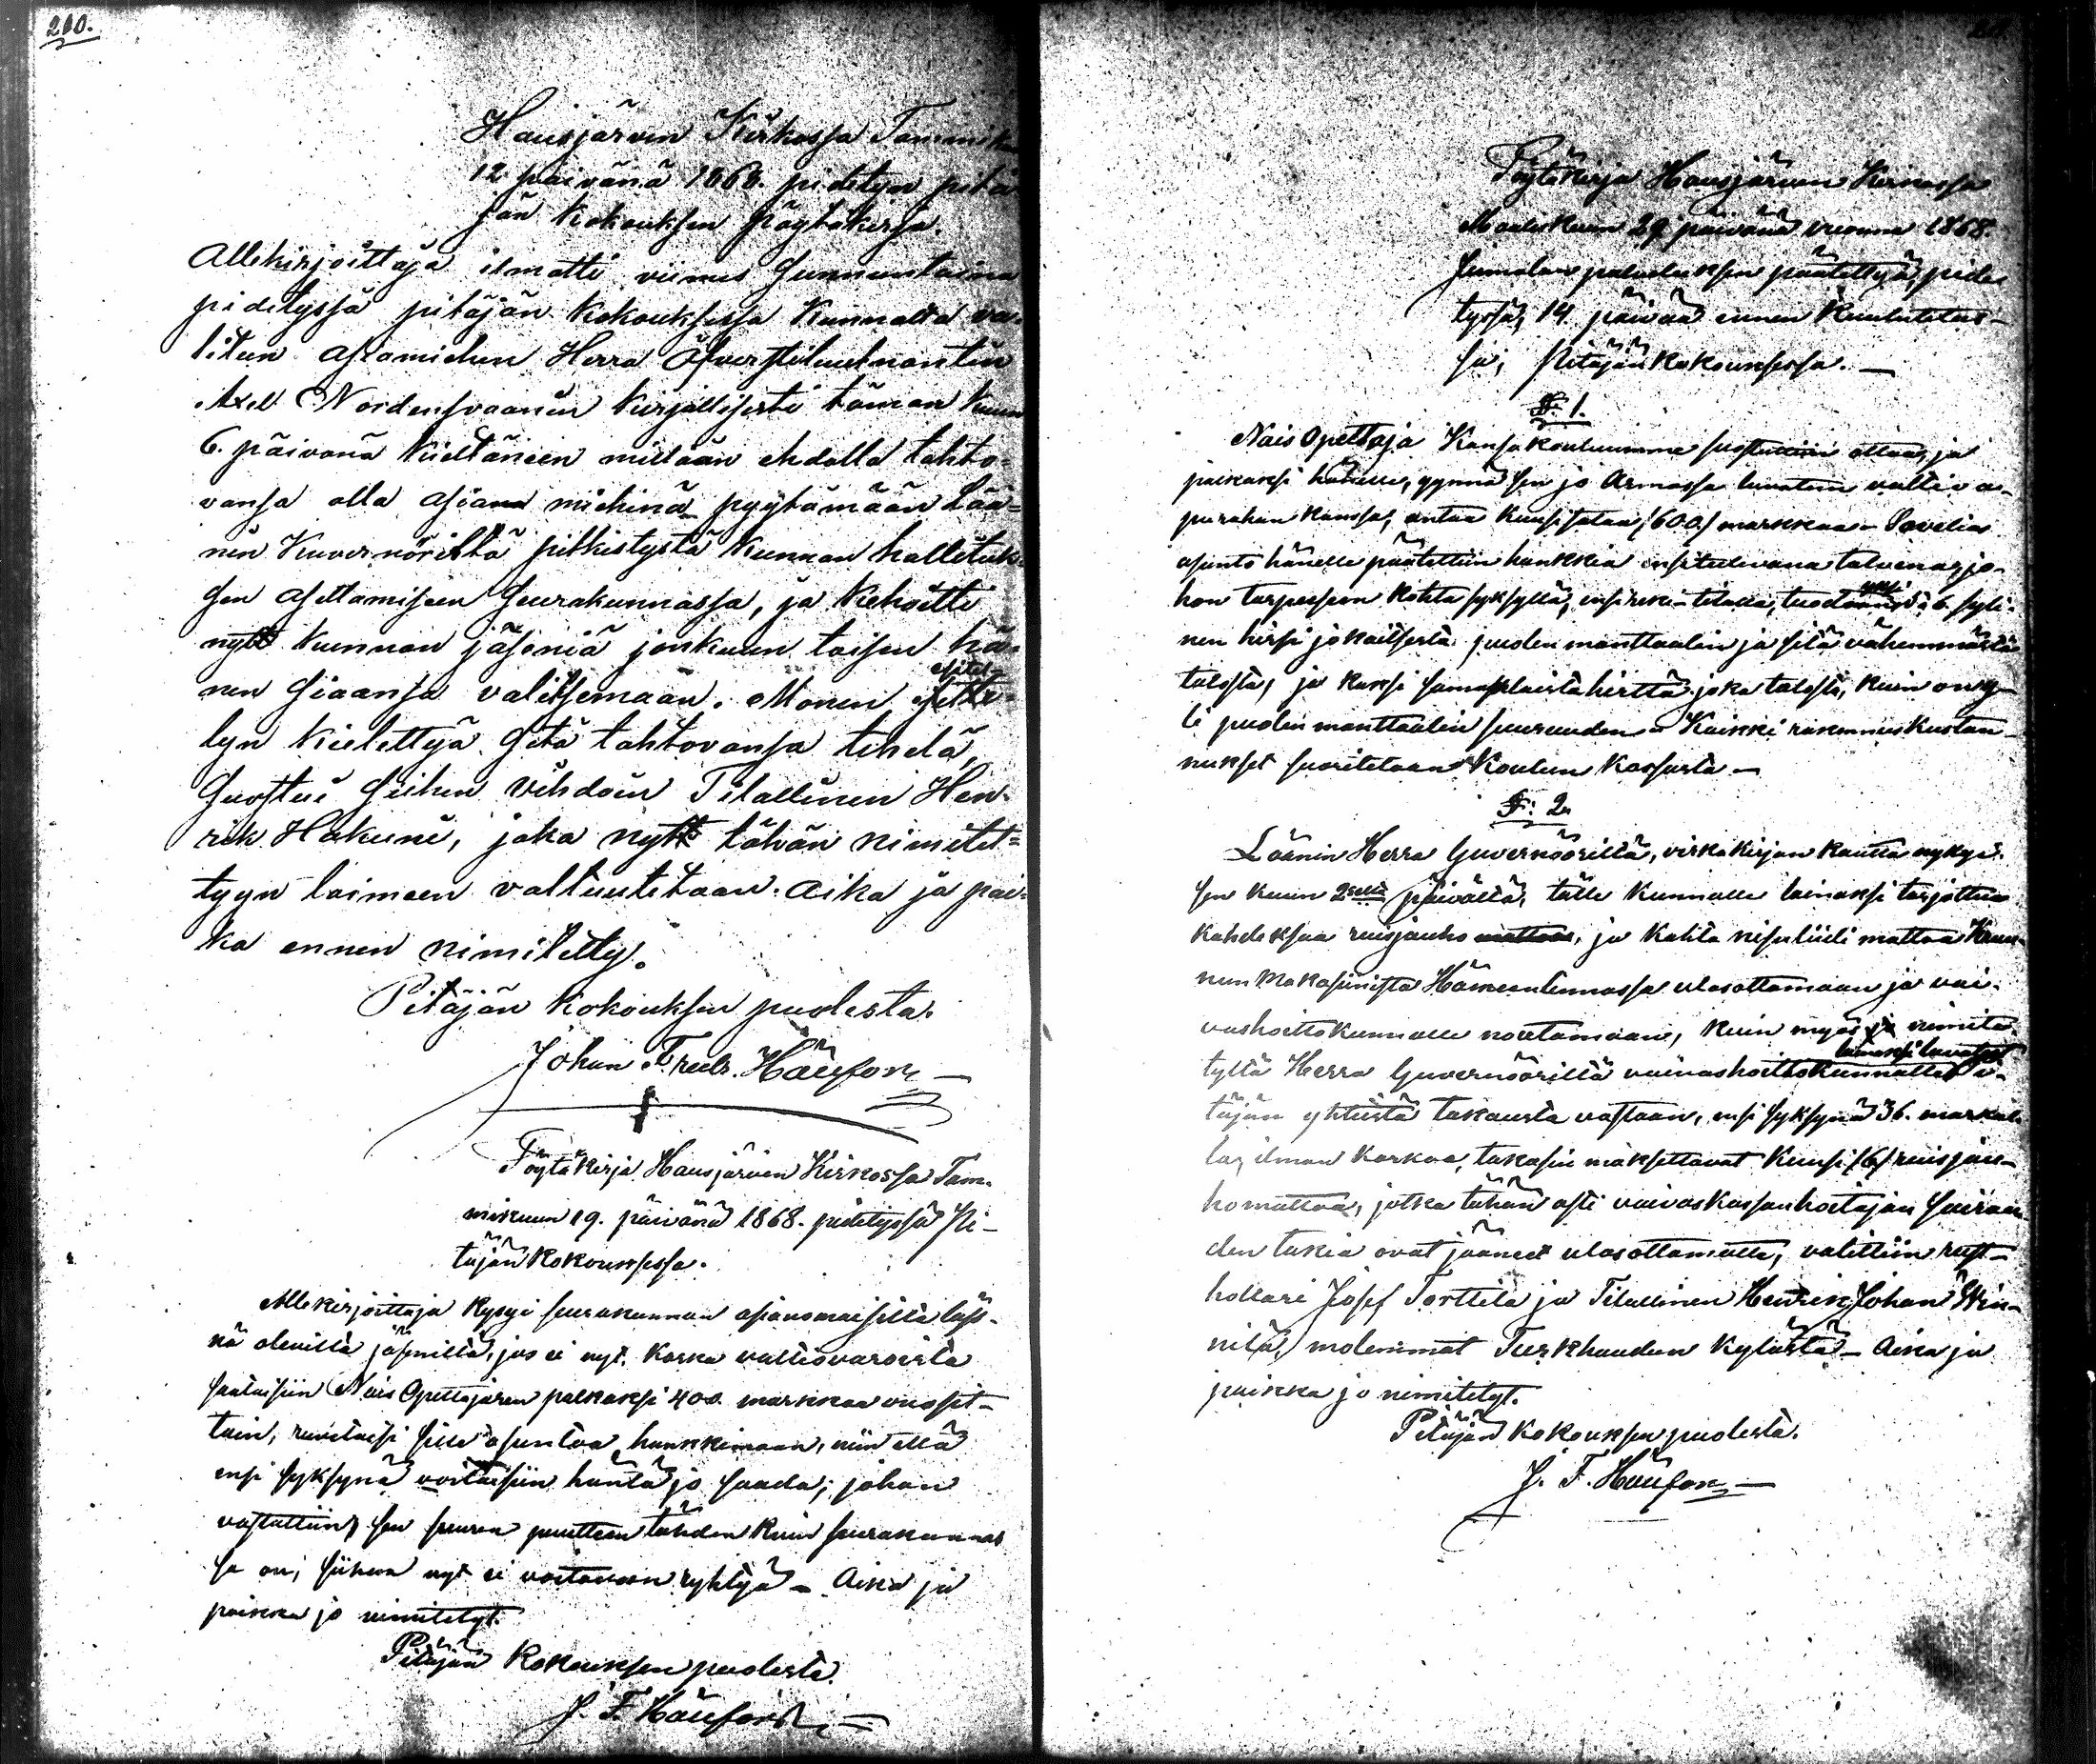 200.
Hausjärven Kirkossa Tammiku
12 päivänä 1868. pidetyn pitä
jän kokouksen Pöytäkirja.
Allekirjoittaja ilmotti viimes Sunnuntaina
pidetyssä pitäjän kokouksessa Kunnalta va-
litun Asiamiehen Herra Öfverstiluutnantin
Axel Nordensvaanin kirjallisesti tämän kuun
6. päivänä kieltäneen millään ehdolla tahto-
vansa olla asian miehinä pyytämään Lää-
nin Kuvernöriltä pitkistystä kunnan hallituk-
sen asettamiseen Seurakunnassa, ja kehoitti
nytt kunnan jäseniä jonkuun toisen hä-
nen siaansa valitsemaan. Monen esitel-
lyn kielettyä sitä tahtovansa tehdä,
Suostui siihen vihdoin Tilallinen Hen-
rik Hakuni, joka nytt tähän nimitet-
tyyn toimeen valtuutetaan. Aika ja pai-
ka ennen nimitetty.
Pitäjän kokouksen puolesta.
Johan Fredr. Häufors
Pöytäkirja Hausjärven Kirkossa Tam-
mikuun 19. päivänä 1868. pidetyssä Pi-
täjän kokouksessa.
Allekirjoittaja kysyi seurakunnan asianomaisilta läs-
nä olevilta jäsenillä, jos ei nyt, koska valtiovaroista
saataisiin Nais Opettajaren palkaksi 400. markkaa vuosit-
tain, ruvetaisi sille asuntoa hankkimaan, niin että
ensi syksynä voitaisiin häntä jo saada; johon
vastattiin, sen suuren puutteen tähden kuin seurakunnas
sa on, siihen nyt ei voitavan ryhtyä – Aika ja
paikka jo nimitetyt.
Pitäjän kokouksen puolesta.
J. F. Häufors
Pöytäkirja Hausjärven Kirkossa
Maaliskuun 29 päivänä vuonna 1868.
Jumalan palveluksen päätettyä, pide-
tyssä, 14 päivää ennen kuulutetus-
sa, Pitäjänkokouksessa. —
§: 1.
Nais Opettaja Kansakouluumme suostuttiin ottaa, ja
palkaksi hänelle, ynnä sen jo Armossa luvatun valtio a-
purahan kanssa, antaa kuusisataa /600/ markkaa – Sovelias
asunto hänelle päätettiin hankkia ensitulevana talvena, jo-
hon tarpeeseen kohta syksyllä, ensi reki-tilalla, tuodaan yksi 6. syli-
nen hirsi jokaitsesta puolen manttaalin ja sitä vähemmästä
talosta, ja kaksi samanlaista hirttä joka talosta, kuin on y-
li puolen manttaalin suuruuden – Kaikki rakennus kustan-
nukset suoritetaan Koulun kassasta –
§: 2.
Läänin Herra Guvernöörillä, virkakirjan kautta nykyi-
sen kuun 2selta päivältä, tälle kunnalle lainaksi tarjottua
kahdeksaa ruisjauho mattoa, ja kahta
nun Makasiinista Hämeenlinnassa ulosottamaan ja vai-
vashoitokunnalle noutamaan, kuin myös ja nimite-
tyltä Herra Guvernöörillä vaivashoitokunnalle lainaksi luvatut
täjän yhteistä takausta vastaan, ensi syksynä 36. markal-
la, ilman korkoa, takasin maksettavat kuusi /6/ ruisjau-
homattoa, jotka tähän asti vaivaskassanhoitajan sairau-
den takia ovat jääneet ulosottamatta, valittiin rust-
hollari Josef Torttila ja Tilallinen Henrik Johan
nilä, molemmat Turkhaudan kylästä – Aika ja
paikka jo nimitetyt.
Pitäjän kokouksen puolesta.
J. F. Häufors